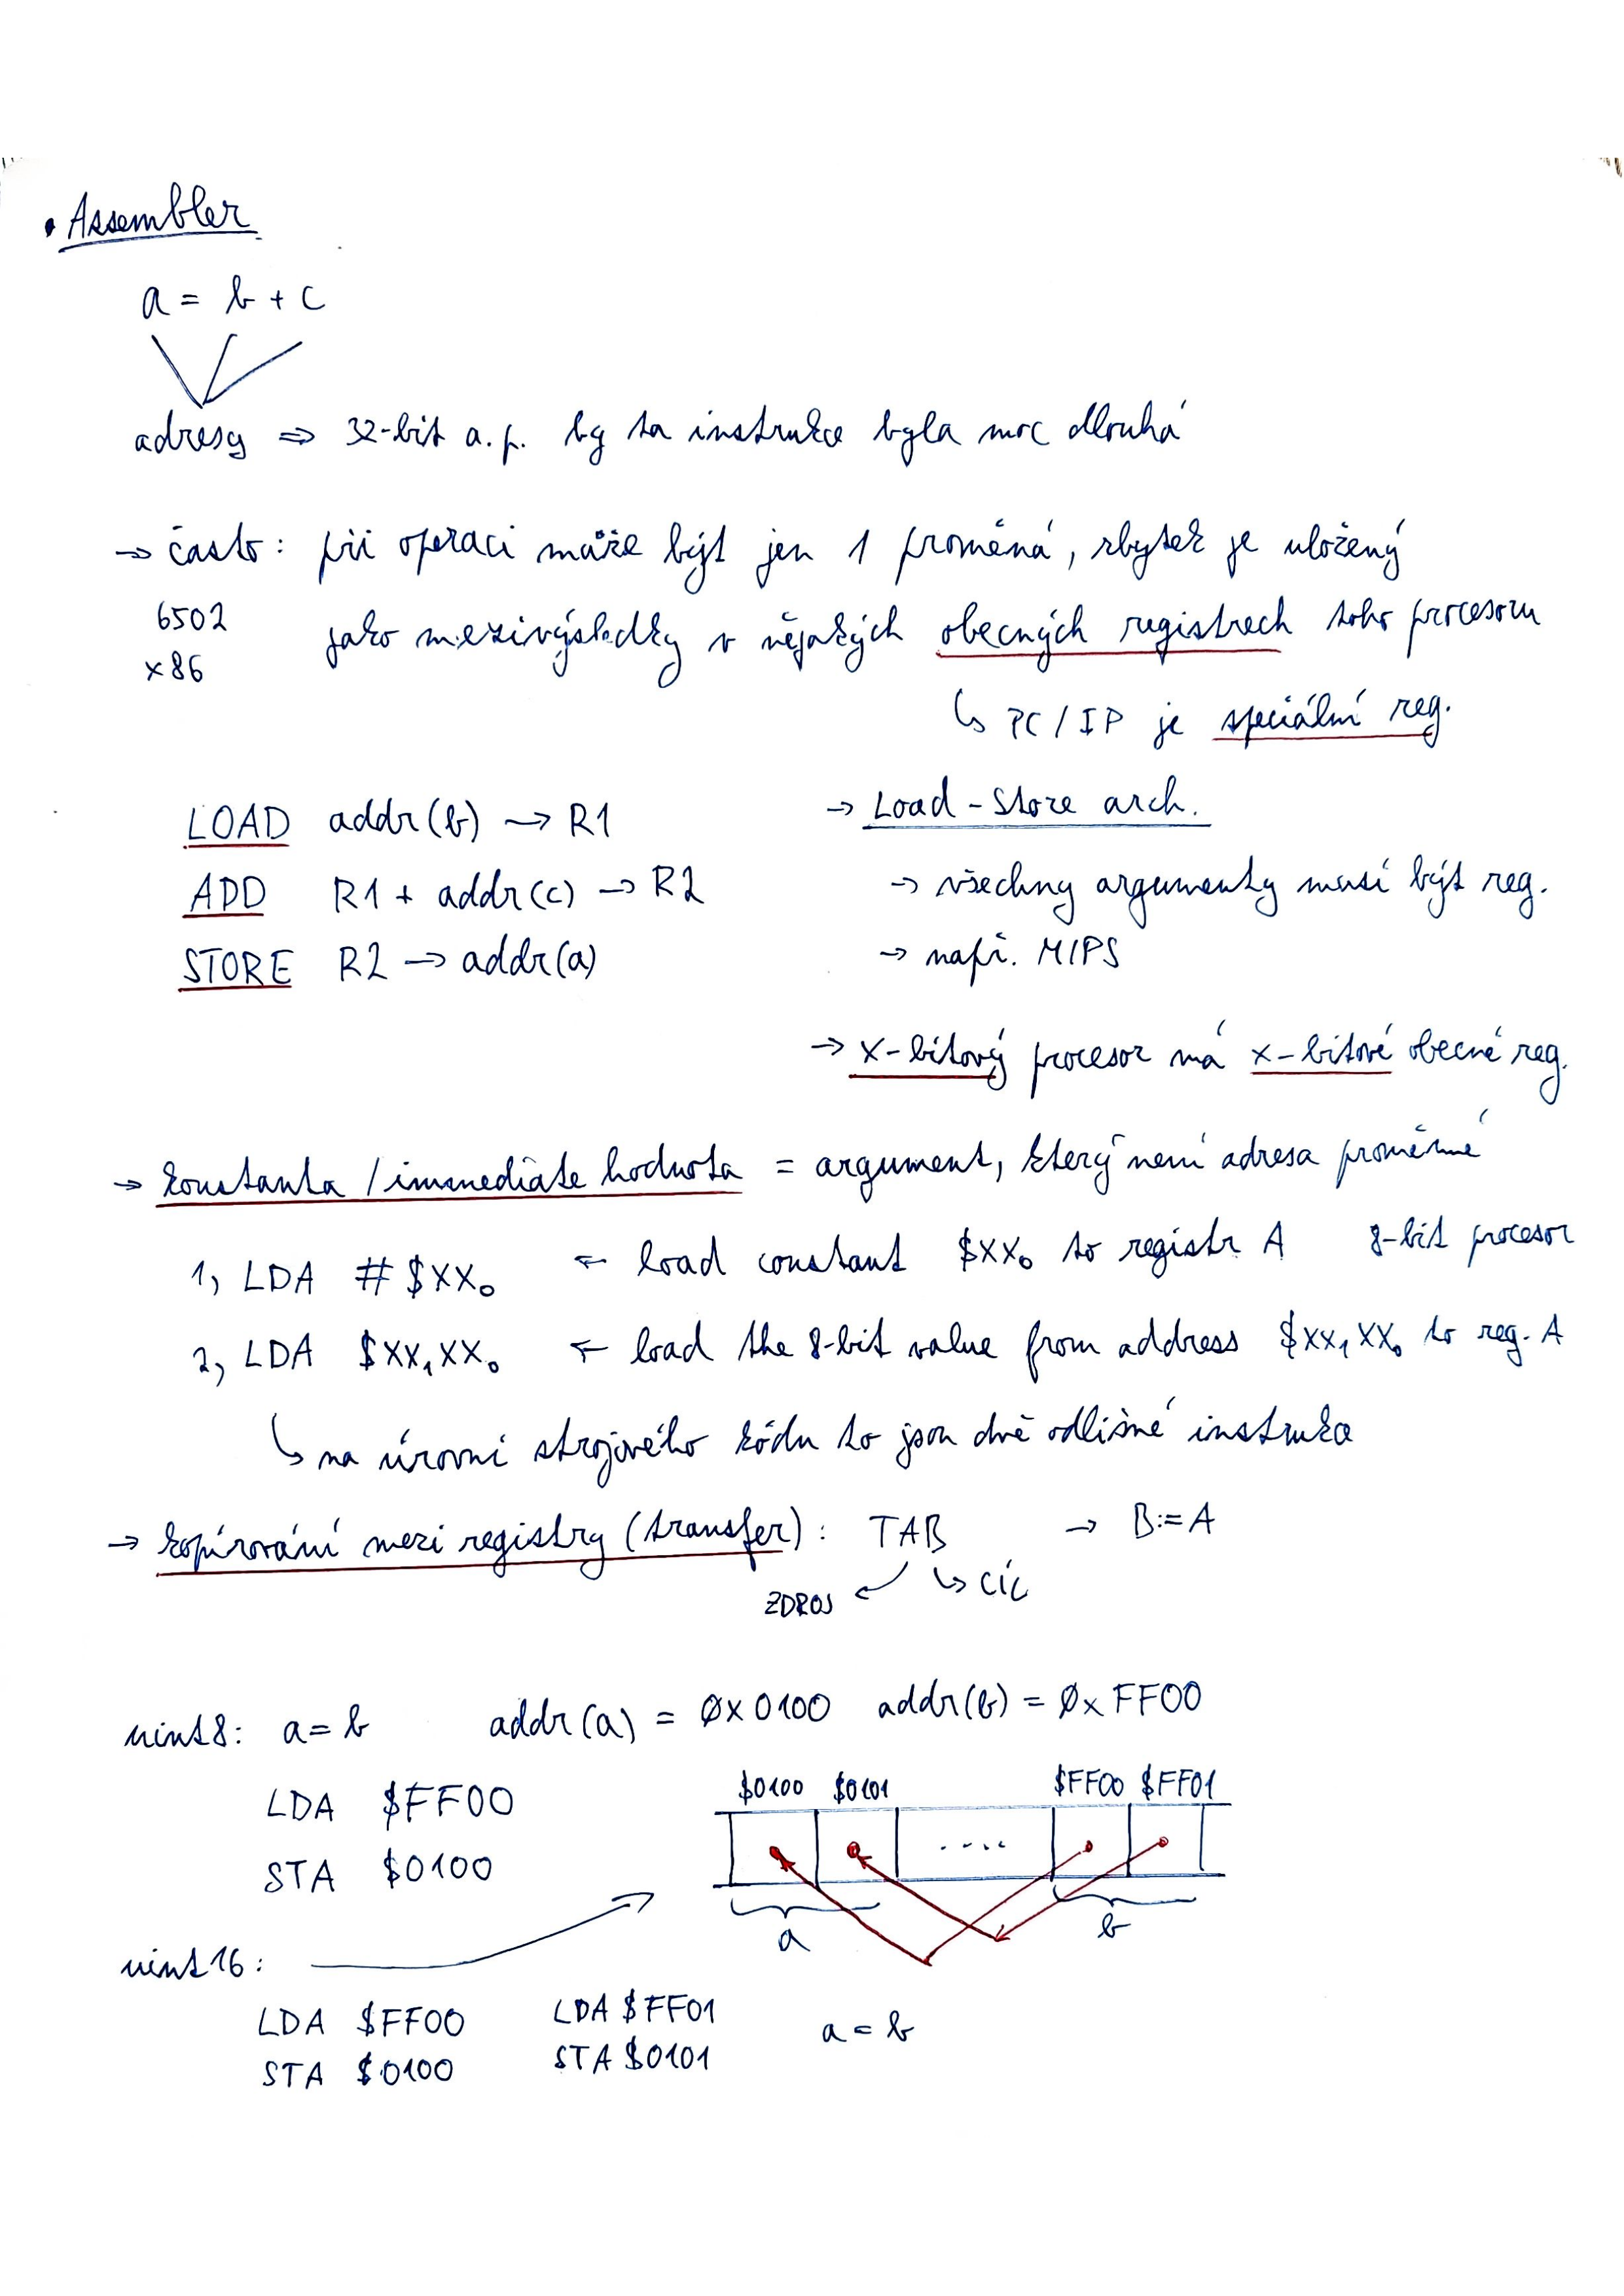 • Assembler
a = b + c
adresy ⇒ 32-bit a.p. by ta instrukce byla moc dlouhá
→ často: při operaci může být jen 1 proměná, zbytek je uložený
6502 jako mezivýsledky v nějakých obecných registrech toho procesoru
x86
↳ PC / IP je speciální reg.
LOAD addr(b) → R1
ADD R1 + addr(c) → R2
STORE R2 → addr(a)
→ Load-Store arch.
→ všechny argumenty musí být reg.
→ např. MIPS
→ x-bitový procesor má x-bitové obecné reg.
→ konstanta / immediate hodnota = argument, který není adresa proměnné
1, LDA #$XX₀ ← load constant $XX₀ to registr A 8-bit procesor
2, LDA $XX₁XX₀ ← load the 8-bit value from address $XX₁XX₀ to reg. A
↳ na úrovni strojového kódu to jsou dvě odlišné instrukce
→ kopírování mezi registry (transfer): TAB → B:=A
ZDROJ ↙ ↳ CÍL
uint8: a = b addr(a) = 0x0100 addr(b) = 0xFF00
LDA $FF00
STA $0100
$0100 $0101 $FF00 $FF01
....
a b
uint16:
LDA $FF00 LDA $FF01
STA $0100 STA $0101
a = b